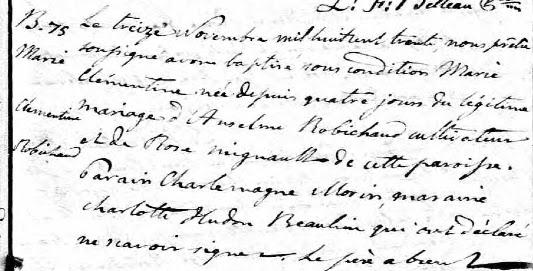 B. 75
Marie
Clementine
Robichaud
Le treize Novembre mil huit cent trente nous prêtre
soussigné avons baptisé sous condition Marie
Clémentine née depuis quatre jours du légitime
mariage d'Anselme Robichaud cultivateur
et de Rose mignault de cette paroisse.
Parain Charlemagne Morin, maraine
charlotte Hudon Beaulieu qui ont déclaré
ne scavoir signer. Le père absent